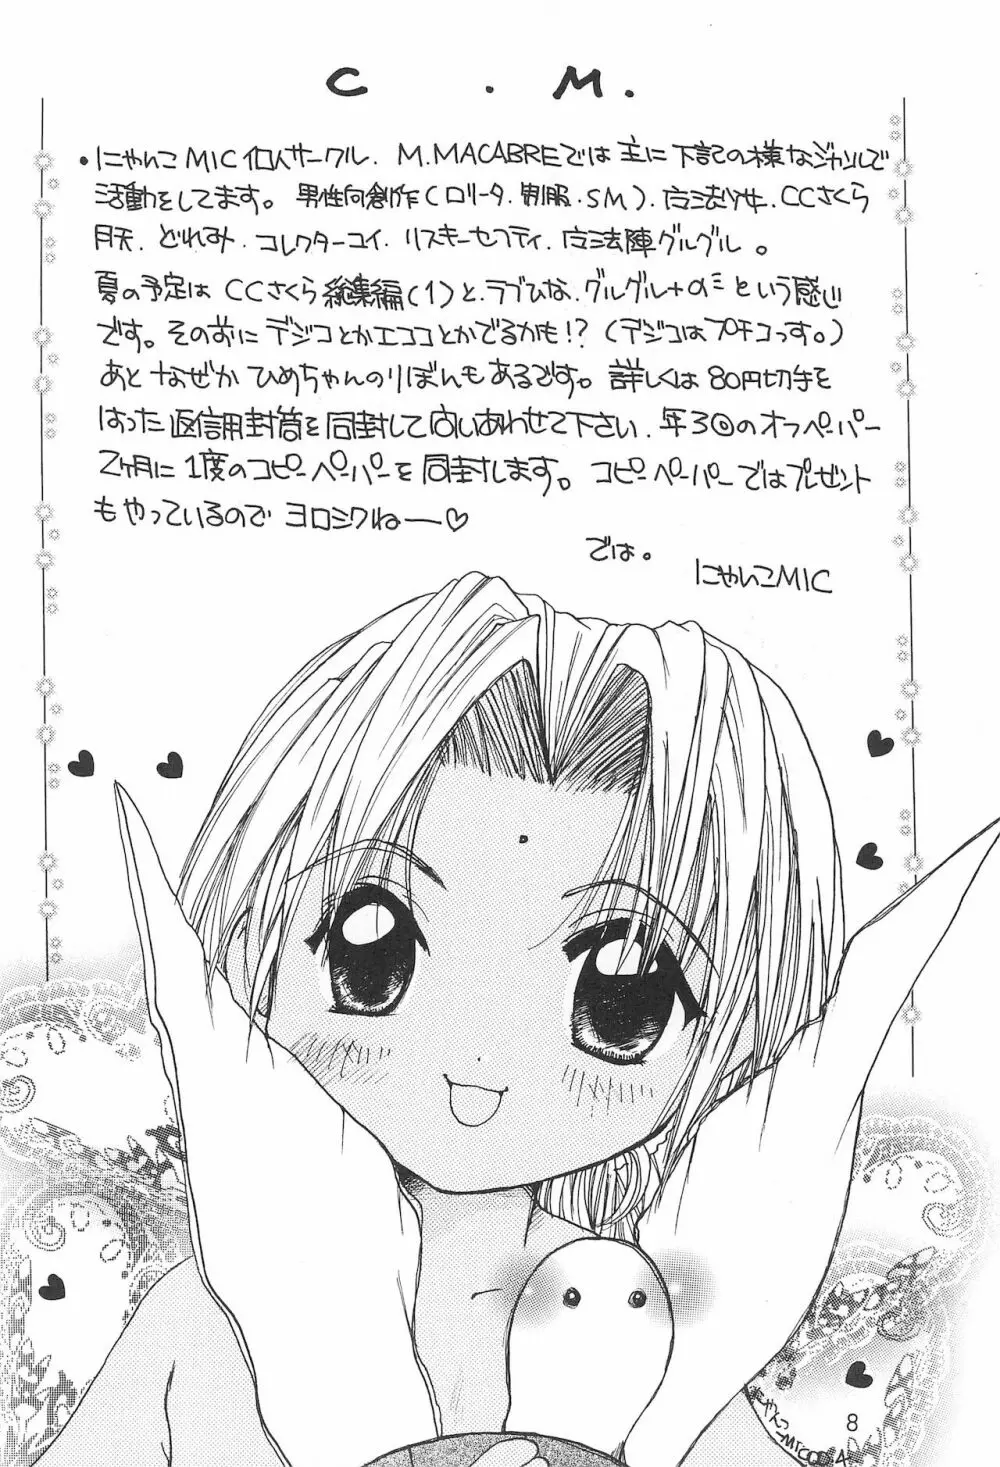 C . M.
・にゃんこMIC個人サークル. M.MACABREでは主に下記の様なジャンルで
活動をしてます。男性向創作(ロリータ.制服.SM). CCさくら
月天. どれみ. コレクターユイ. リスキーセフティ. 魔法陣グルグル。
夏の予定はCCさくら総集編(1)と.ラブひな.グルグル+αという感じ
です。その前にデジコとかエココとかでるかも!?(デジコはプチコっす。)
あと なぜか ひめちゃんのりぼんもあるです。詳しくは80円切手を
はった返信用封筒を同封して問いあわせて下さい. 年3回のオフペーパー
2ヶ月に1度のコピーペーパーを同封します。コピーペーパーではプレゼント
もやっているので ヨロシクねー♡
では。
にゃんこMIC
8